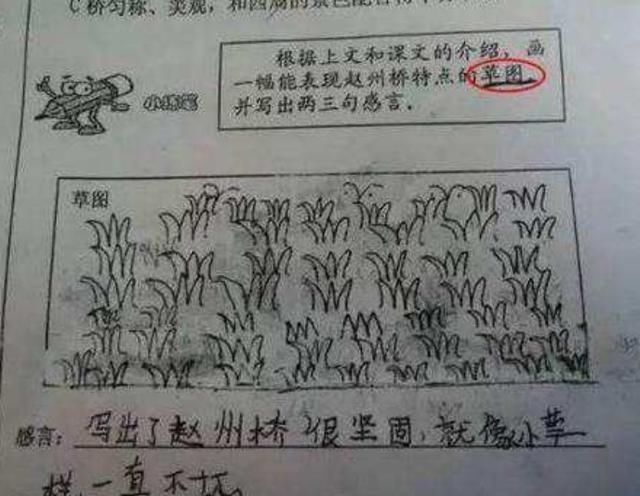 C 桥匀称、美观，和四周的景色配合得
根据上文和课文的介绍，画
一幅能表现赵州桥特点的草图，
并写出两三句感言．
草图
感言：写出了赵州桥很坚固，就像小草
样一直不坏。